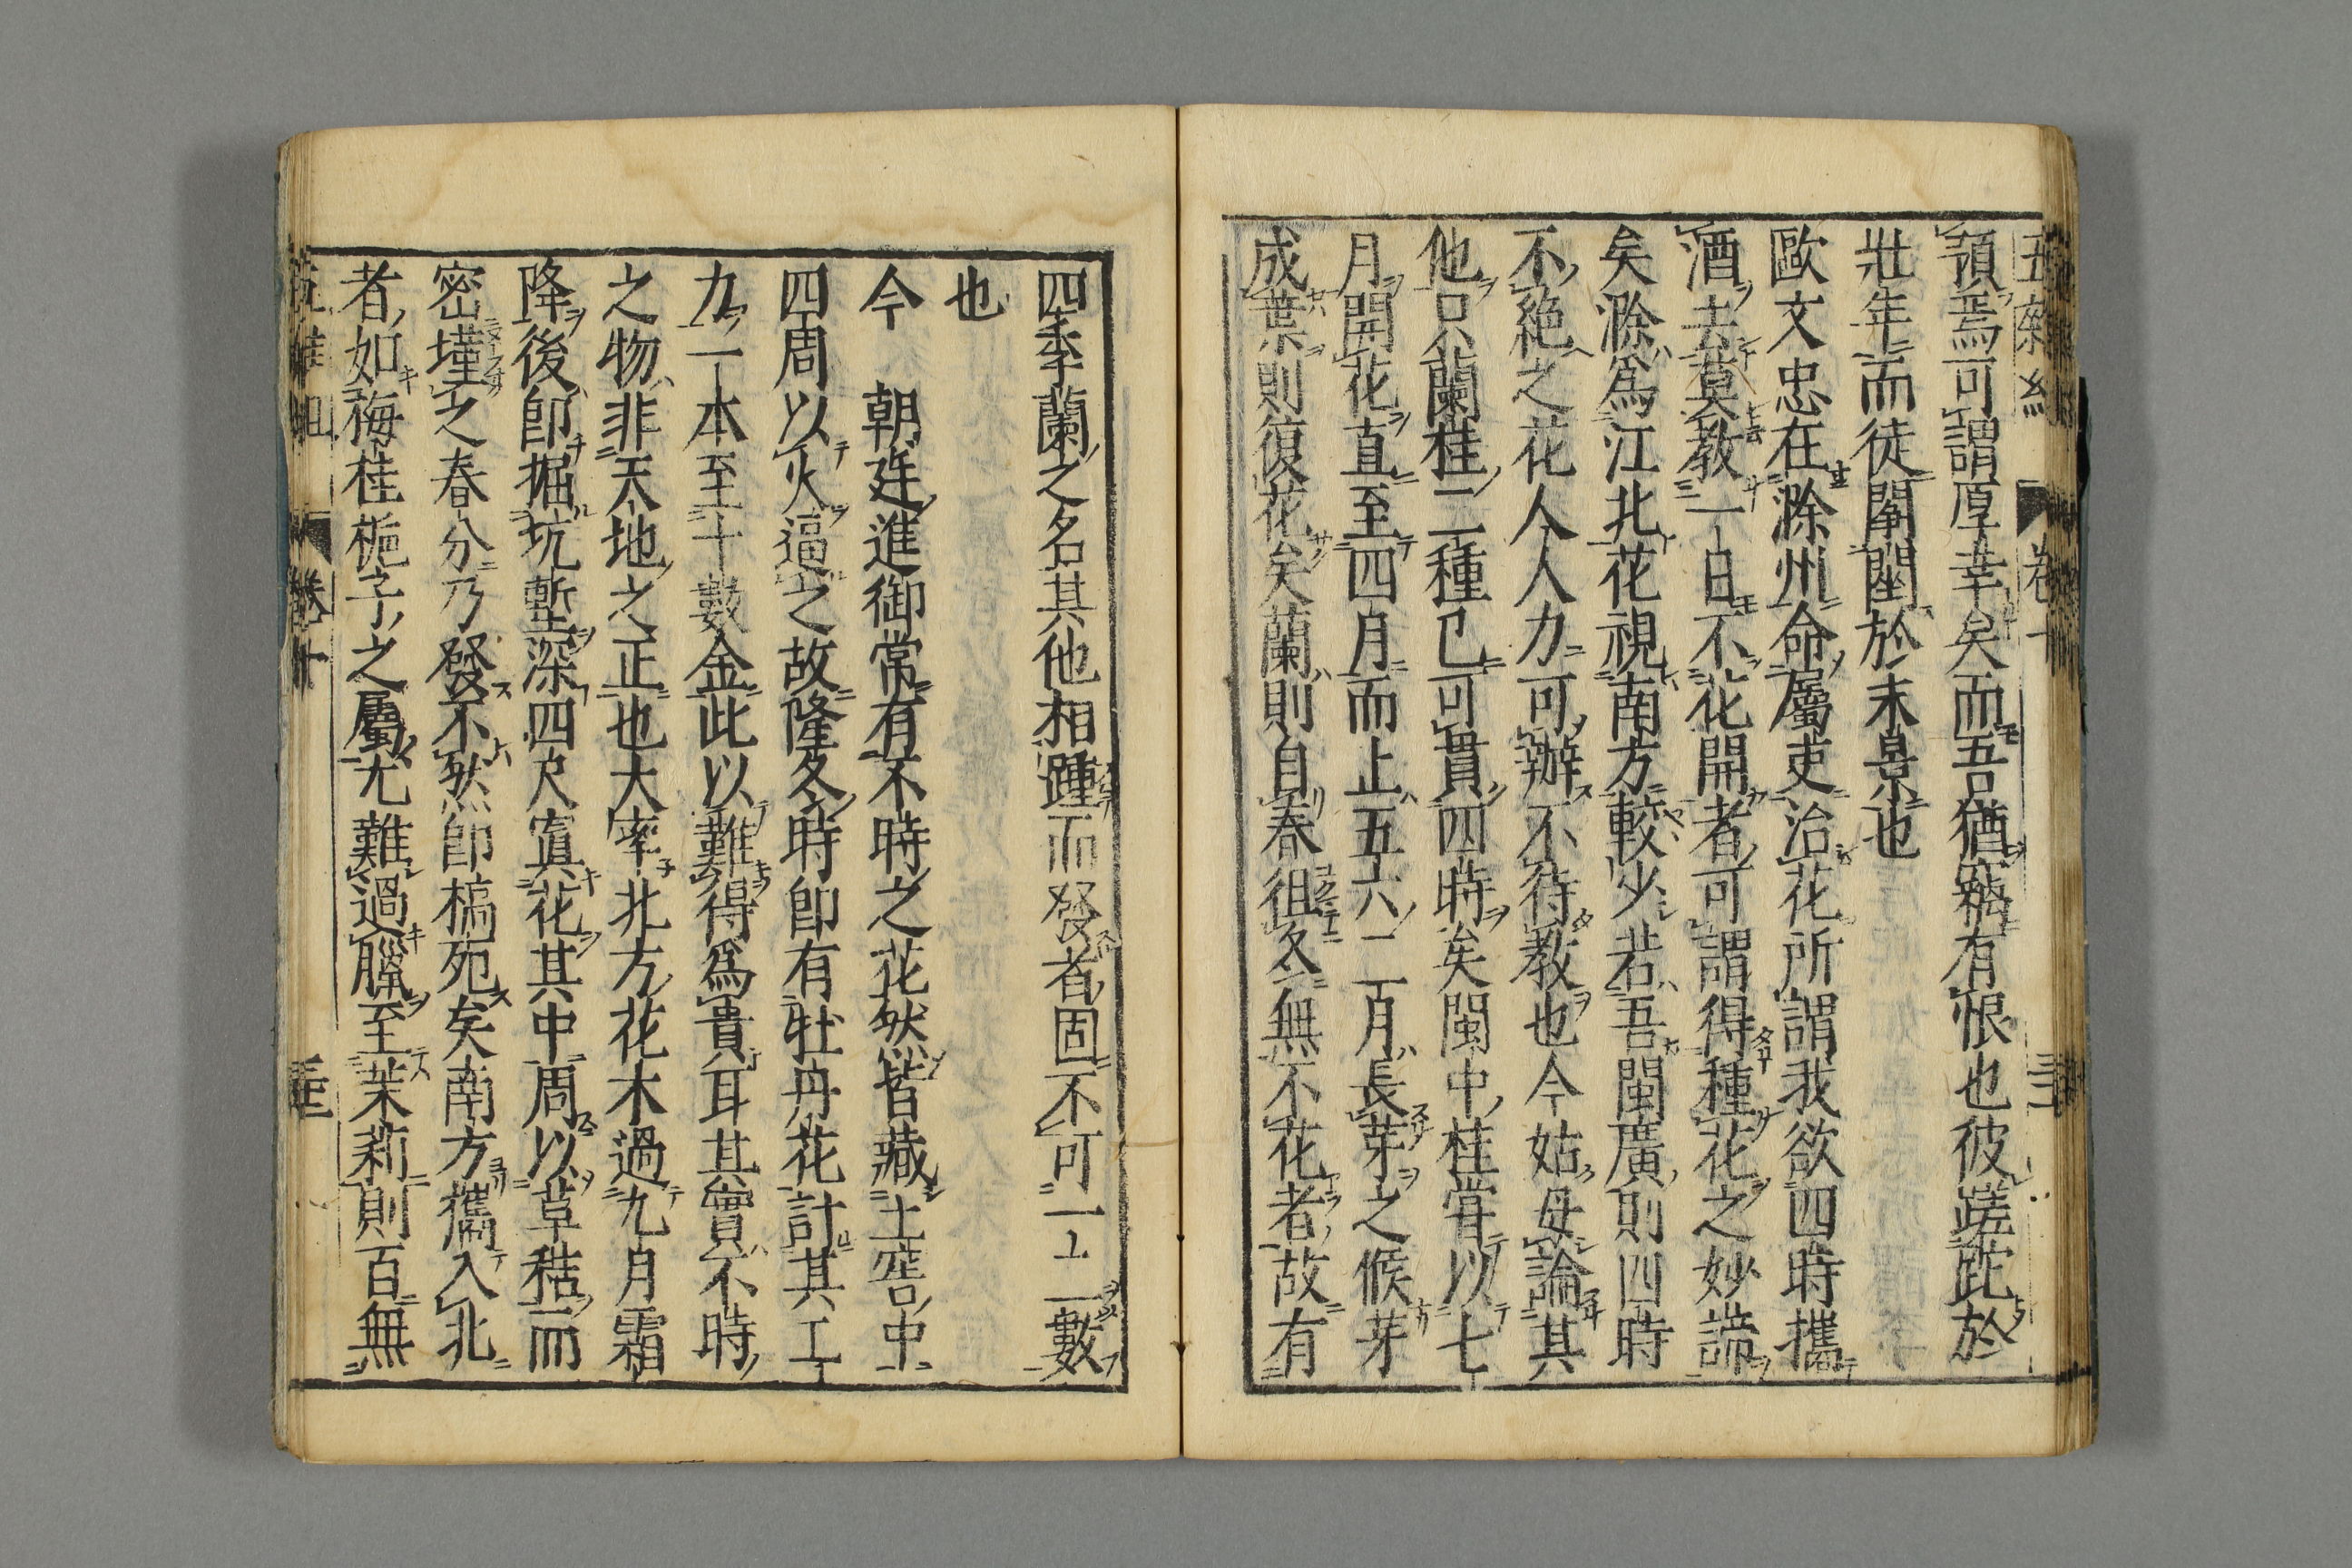 五雜組 卷十
頷焉可謂厚幸矣而吾猶竊有恨也彼蹉跎於
壯年而徒鬪鬮於末景也
歐文忠在滁州命屬吏治花所謂我欲四時攜
酒去莫教一日不花開者可謂得種花之妙諦
矣滁爲江北花視南方較少若吾閩廣則四時
不絶之花人人力可辦不待教也今姑毋論其
他只蘭桂二種已可貫四時矣閩中桂甞以七
月開花直至四月而止五六二月長芽之候芽
成葉則復花矣蘭則自春徂冬無不花者故有
四季蘭之名其他相踵而發者固不可一二數
也
今 朝廷進御常有不時之花然皆藏土窖中
四周以火逼之故隆冬時即有牡丹花計其工
力一本至十數金此以難得爲貴耳其實不時
之物非天地之正也大率北方花木過九月霜
降後即掘坑塹深四尺寘花其中周以草秸而
密墐之春分乃發不然即槁死矣南方攜入北
者如梅桂梔子之屬尤難過臘至茉莉則百無
卷十